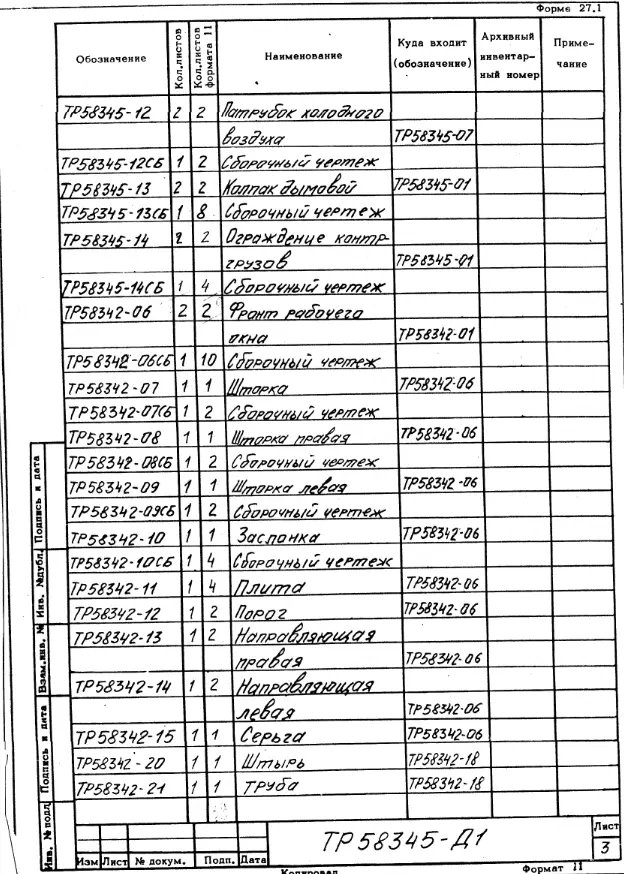 Форма 27.1
Обозначение Кол.листов Кол.листов формата 11 Наименование Куда входит (обозначение) Архивный инвентарный номер Примечание
ТР58345-12 2 2 Патрубок холодного
воздуха ТР58345-07
ТР58345-12СБ 1 2 Сборочный чертеж
ТР58345-13 2 2 Колпак дымовой ТР58345-01
ТР58345-13СБ 1 8 Сборочный чертеж
ТР58345-14 2 2 Ограждение контр-
грузов ТР58345-01
ТР58345-14СБ 1 4 Сборочный чертеж
ТР58342-06 2 2 Фронт рабочего
окна ТР58342-01
ТР58342-06СБ 1 10 Сборочный чертеж
ТР58342-07 1 1 Шторка ТР58342-06
ТР58342-07СБ 1 2 Сборочный чертеж
ТР58342-08 1 1 Шторка правая ТР58342-06
ТР58342-08СБ 1 2 Сборочный чертеж
ТР58342-09 1 1 Шторка левая ТР58342-06
ТР58342-09СБ 1 2 Сборочный чертеж
ТР58342-10 1 1 Заслонка ТР58342-06
ТР58342-10СБ 1 4 Сборочный чертеж
ТР58342-11 1 4 Плита ТР58342-06
ТР58342-12 1 2 Порог ТР58342-06
ТР58342-13 1 2 Направляющая
правая ТР58342-06
ТР58342-14 1 2 Направляющая
левая ТР58342-06
ТР58342-15 1 1 Серьга ТР58342-06
ТР58342-20 1 1 Штырь ТР58342-18
ТР58342-21 1 1 Труба ТР58342-18
Подпись и дата
Инв. №дубл.
Взам.инв. №
Подпись и дата
Инв. №подл
Изм Лист № докум. Подп. Дата
ТР58345-Д1
Лист
3
Копировал Формат 11